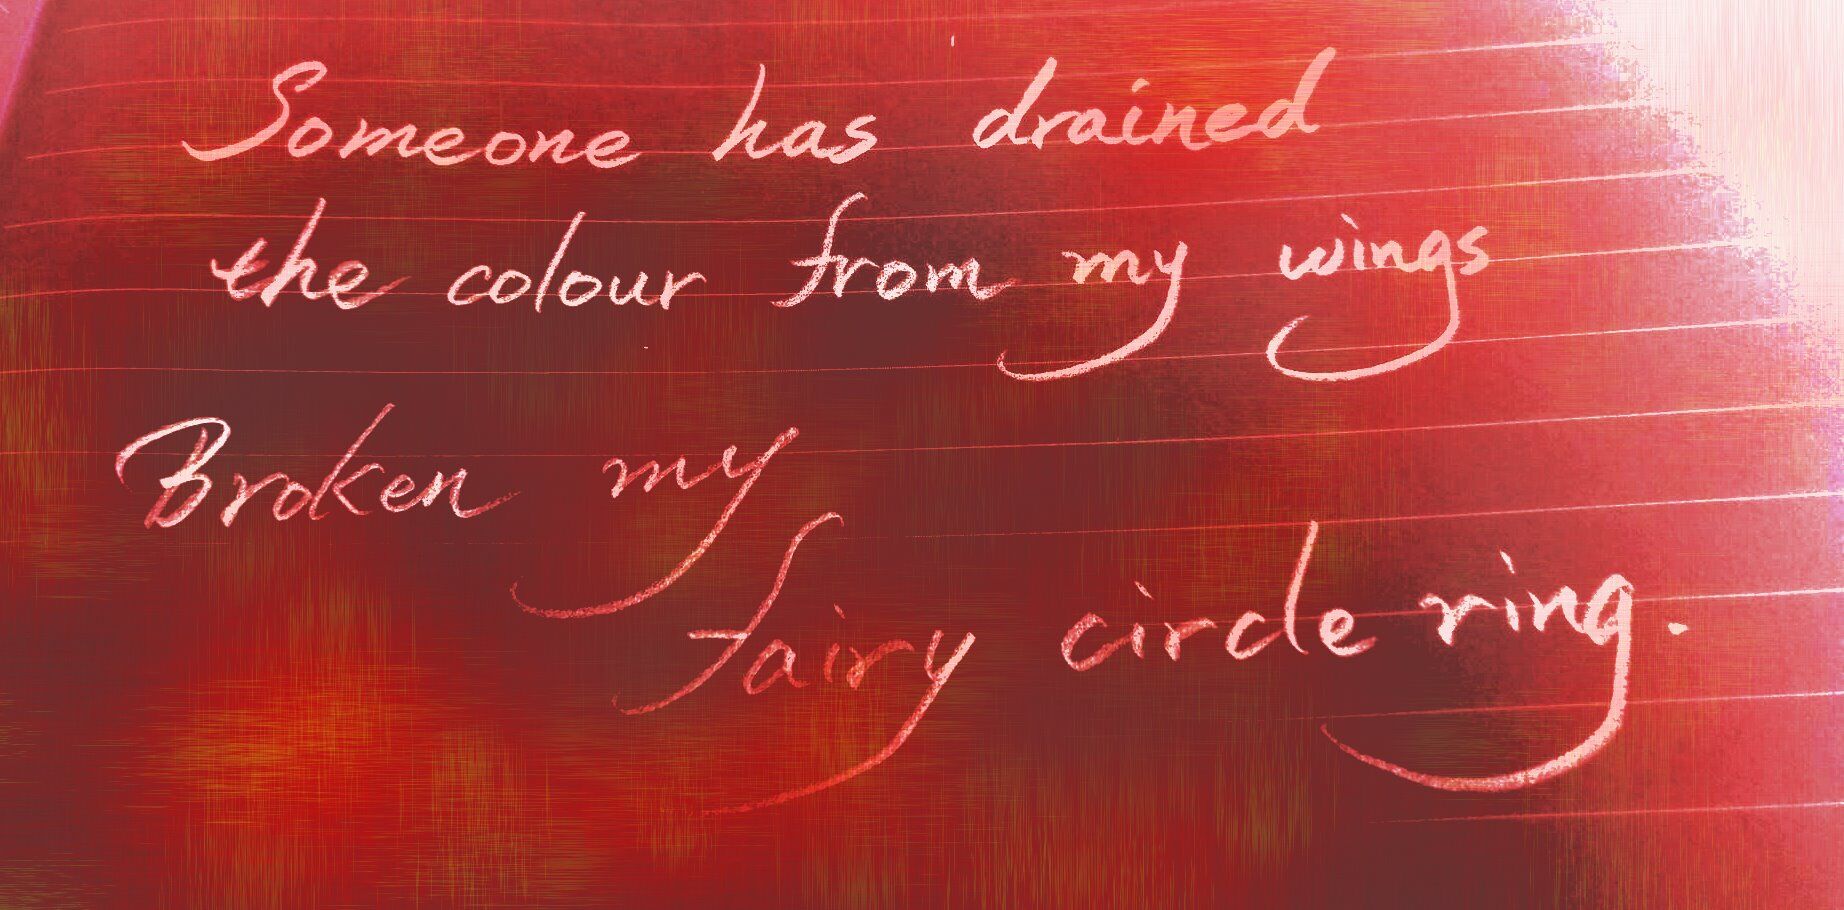 Someone has drained
the colour from my wings
Broken my
fairy circle ring.